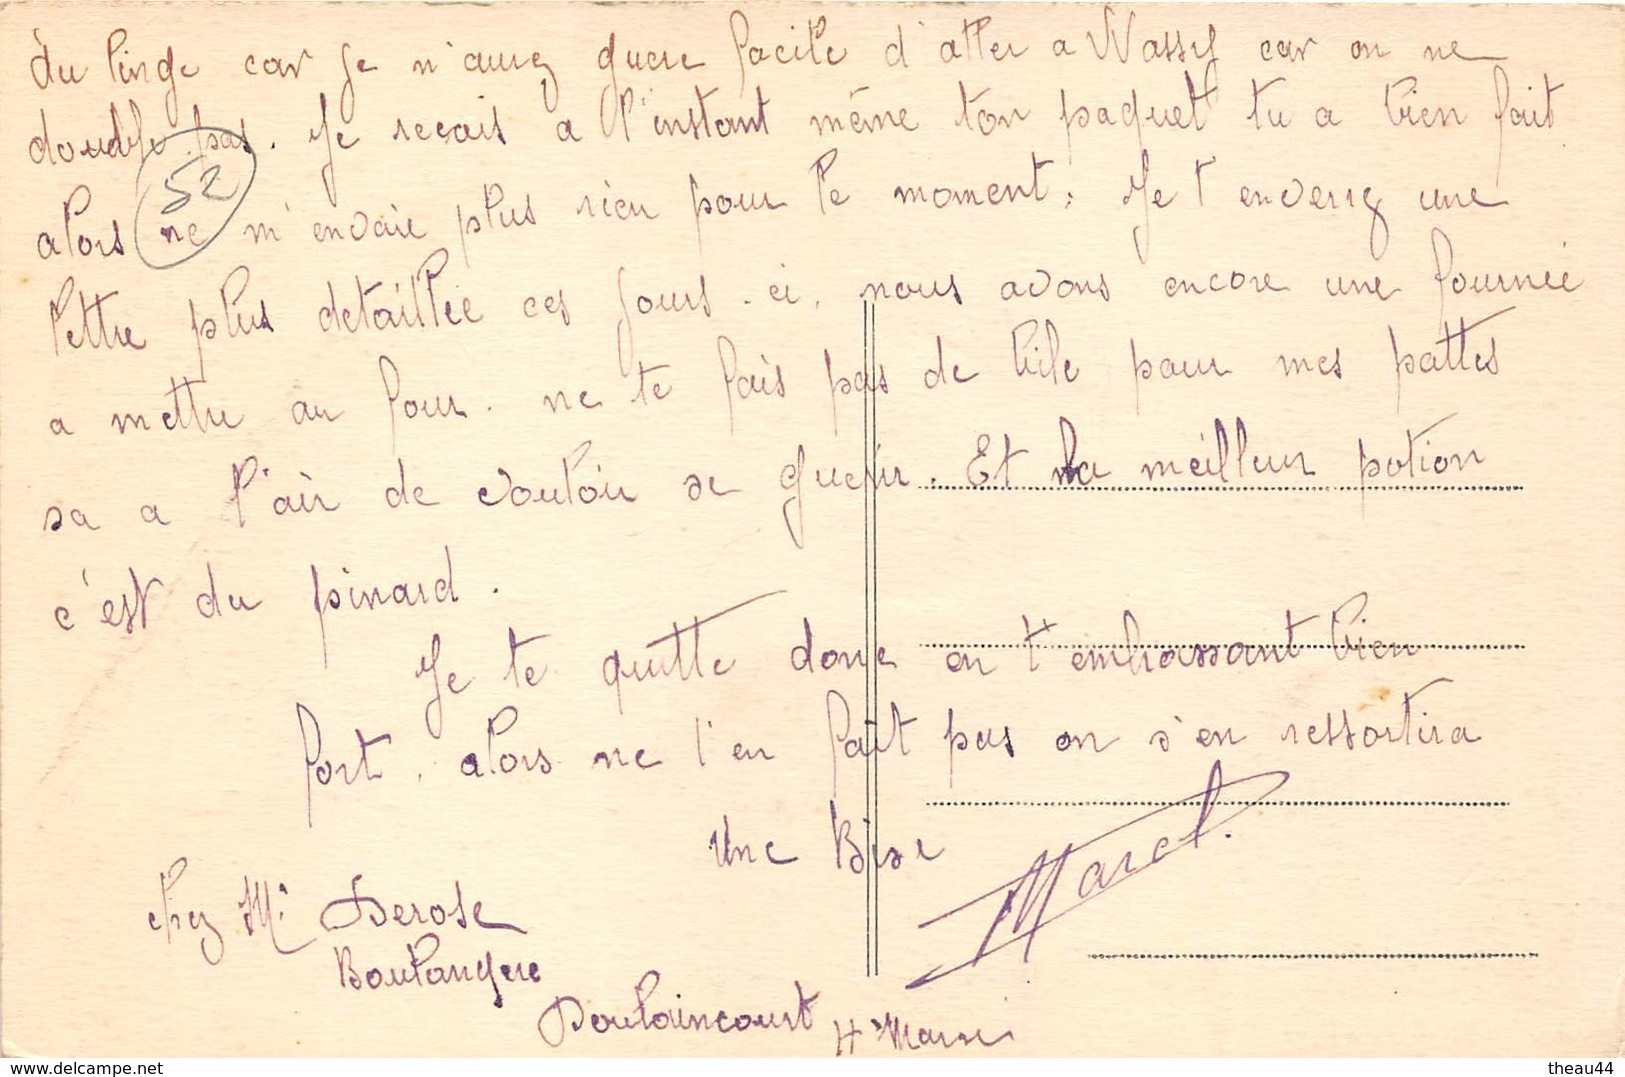 du linge car je n'aurez guere facile d'aller a Wassy car on ne
double pas. Je recais a l'instant même ton paquet tu a bien fait
52
alors ne m'envaie plus rien pour le moment. Je t'enverrez une
lettre plus detaillée ces jours-ci. nous avons encore une fournée
a mettre au four. ne te fais pas de bile pour mes pattes
sa a l'air de vouloir se guerir. Et la meilleur potion
c'est du pinard.
Je te quitte donc en t'embrassant bien
fort, alors ne l'en fait pas on s'en ressortira
Une Bise
Marcel.
chez Mr Derose
Boulangere
Doulaincourt Hte Marne
www.delcampe.net
theau44